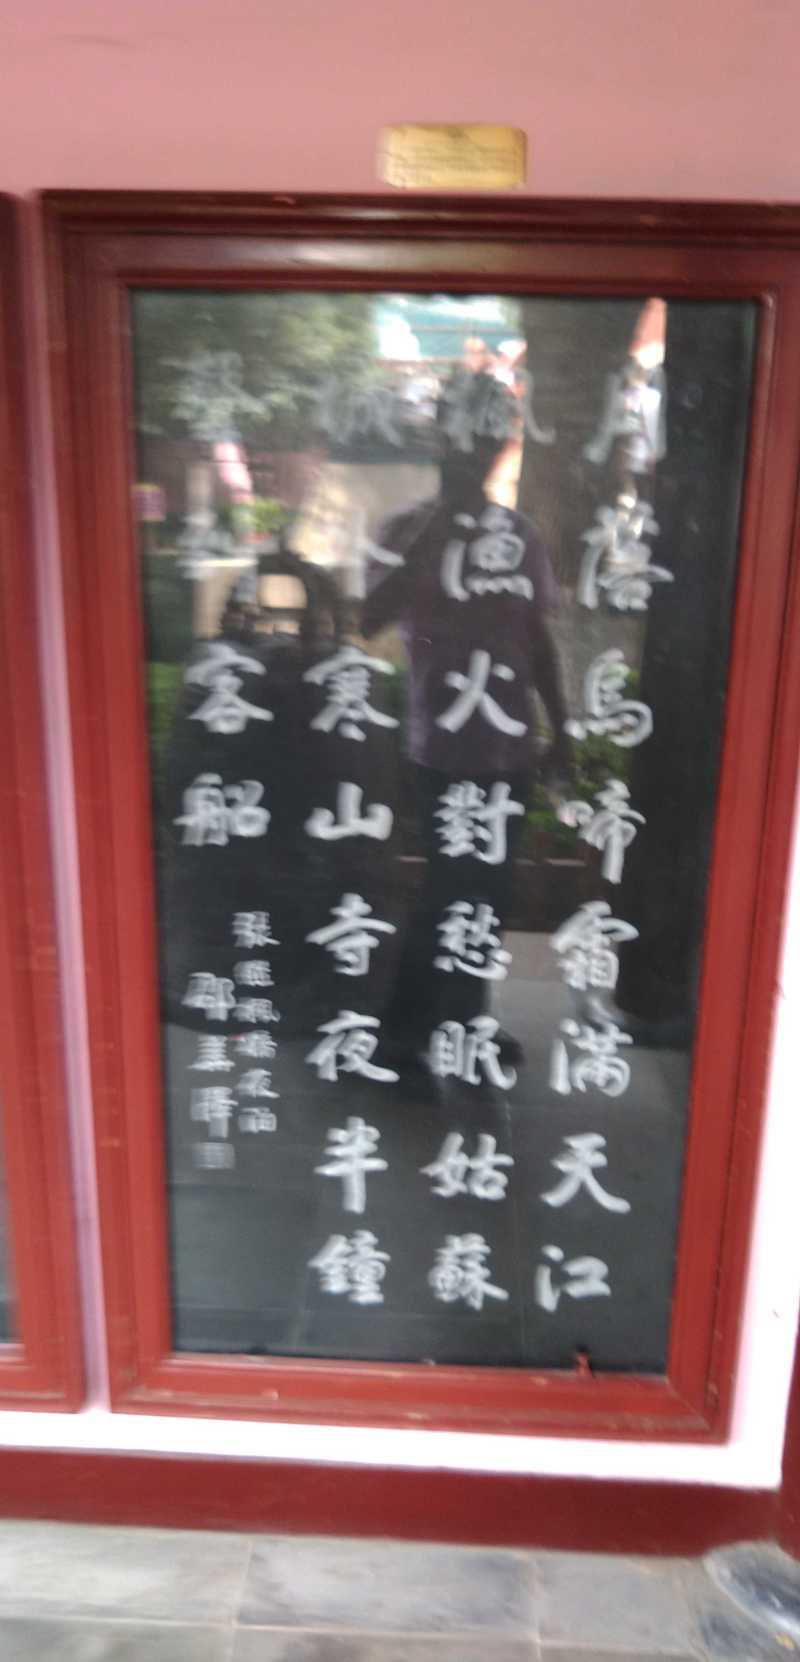 月落烏啼霜滿天江
楓漁火對愁眠姑蘇
城外寒山寺夜半鐘
聲到客船
張繼楓橋夜泊
邵華澤